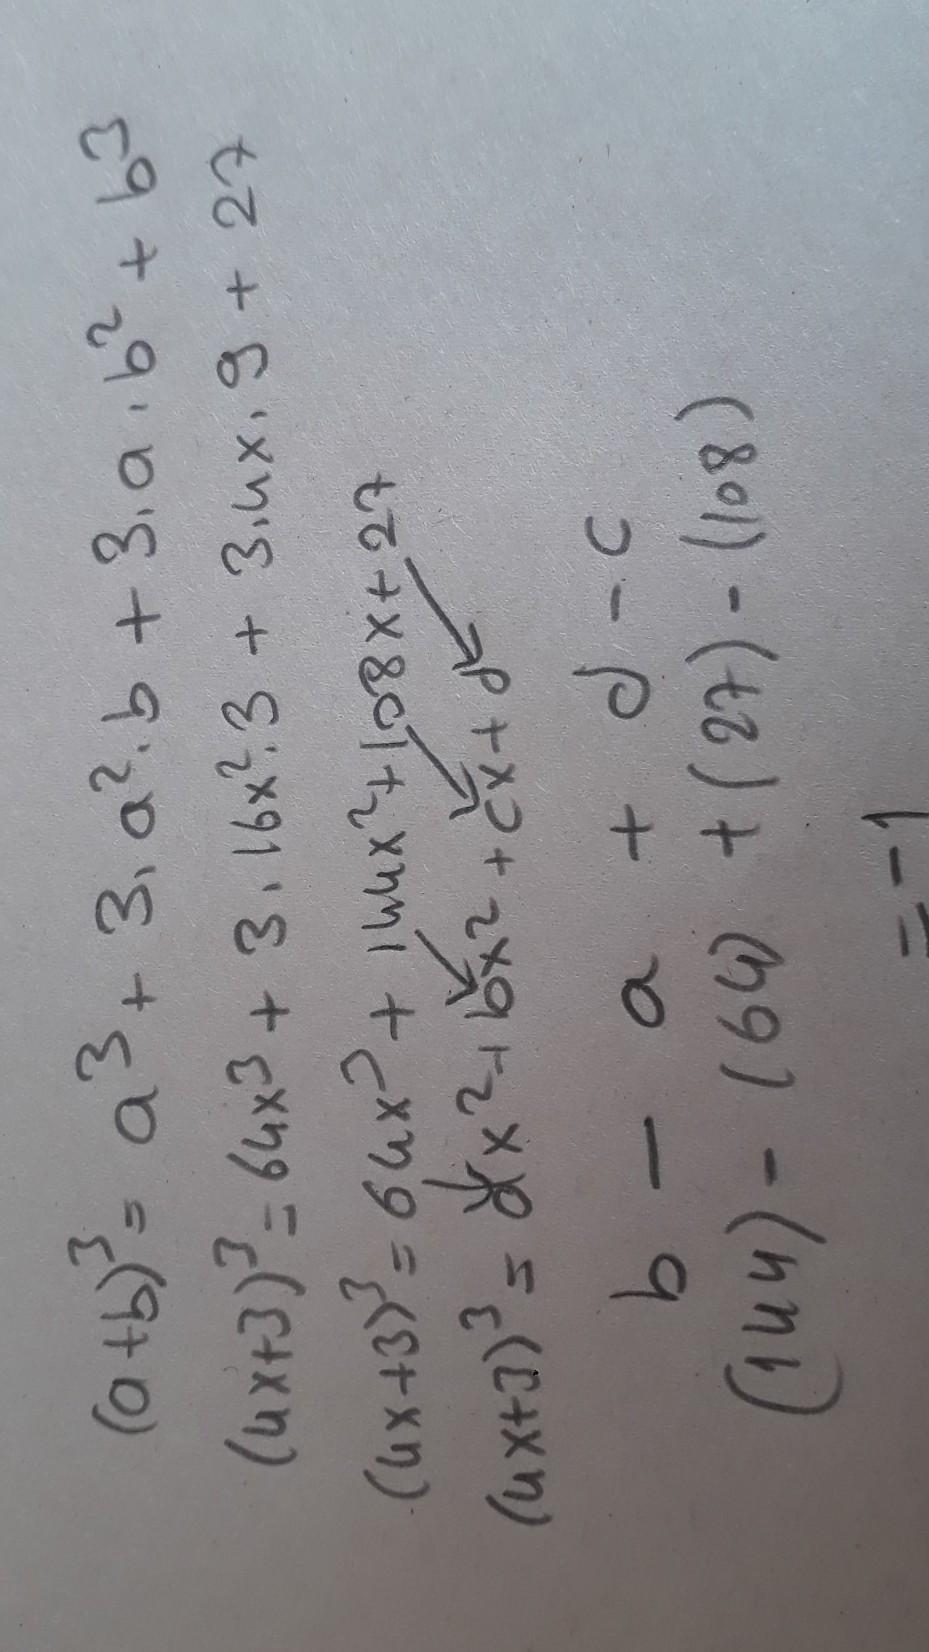 (a+b)³ = a³ + 3.a².b + 3.a.b² + b³
(4x+3)³ = 64x³ + 3.16x².3 + 3.4x.9 + 27
(4x+3)³ = 64x³ + 144x² + 108x + 27
(4x+3)³ = ax² + bx² + cx + d
b - a + d - c
(144) - (64) + (27) - (108)
= -1